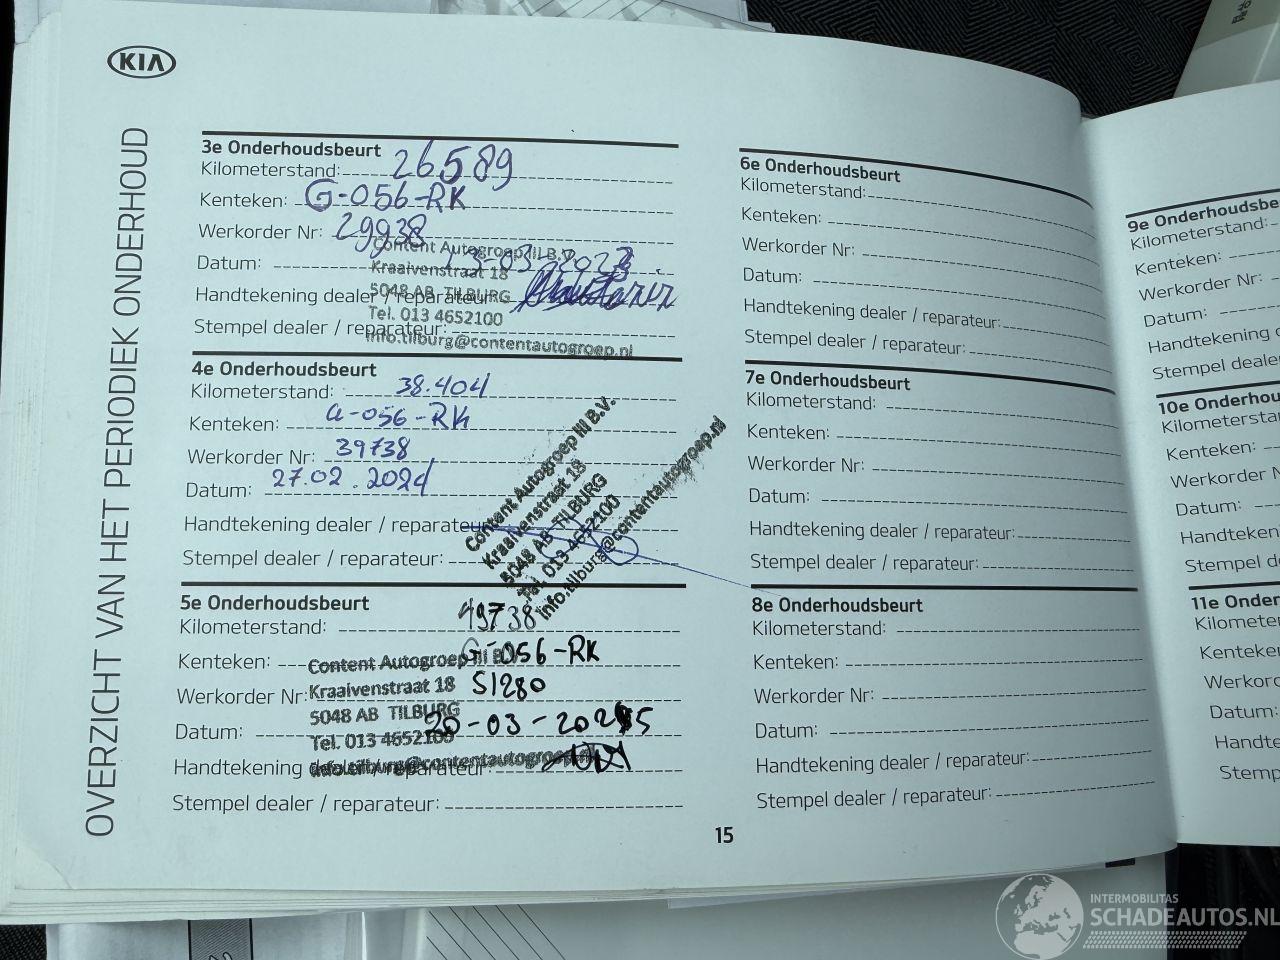 KIA
OVERZICHT VAN HET PERIODIEK ONDERHOUD
3e Onderhoudsbeurt
Kilometerstand: 26589
Kenteken: G-056-RK
Werkorder Nr: 29938
Datum: 13-03-2023
Handtekening dealer / reparateur:
Stempel dealer / reparateur:
Content Autogroep III B.V.
Kraaivenstraat 18
5048 AB TILBURG
Tel. 013 4652100
info.tilburg@contentautogroep.nl
4e Onderhoudsbeurt
Kilometerstand: 38.404
Kenteken: G-056-RK
Werkorder Nr: 39738
Datum: 27.02.2024
Handtekening dealer / reparateur:
Stempel dealer / reparateur:
Content Autogroep III B.V.
Kraaivenstraat 18
5048 AB TILBURG
Tel. 013 4652100
info.tilburg@contentautogroep.nl
5e Onderhoudsbeurt
Kilometerstand: 49738
Kenteken: G-056-RK
Werkorder Nr: 51280
Datum: 20-03-2025
Handtekening dealer / reparateur:
Stempel dealer / reparateur:
Content Autogroep III B.V.
Kraaivenstraat 18
5048 AB TILBURG
Tel. 013 4652100
info.tilburg@contentautogroep.nl
6e Onderhoudsbeurt
Kilometerstand:
Kenteken:
Werkorder Nr:
Datum:
Handtekening dealer / reparateur:
Stempel dealer / reparateur:
7e Onderhoudsbeurt
Kilometerstand:
Kenteken:
Werkorder Nr:
Datum:
Handtekening dealer / reparateur:
Stempel dealer / reparateur:
8e Onderhoudsbeurt
Kilometerstand:
Kenteken:
Werkorder Nr:
Datum:
Handtekening dealer / reparateur:
Stempel dealer / reparateur:
15
9e Onderhoudsbe
Kilometerstand:
Kenteken:
Werkorder Nr:
Datum:
Handtekening
Stempel dealer
10e Onderhou
Kilometersta
Kenteken:
Werkorder N
Datum:
Handteken
Stempel d
11e Onder
Kilomete
Kenteke
Werkord
Datum:
Handte
Stemp
INTERMOBILITAS
SCHADEAUTOS.NL